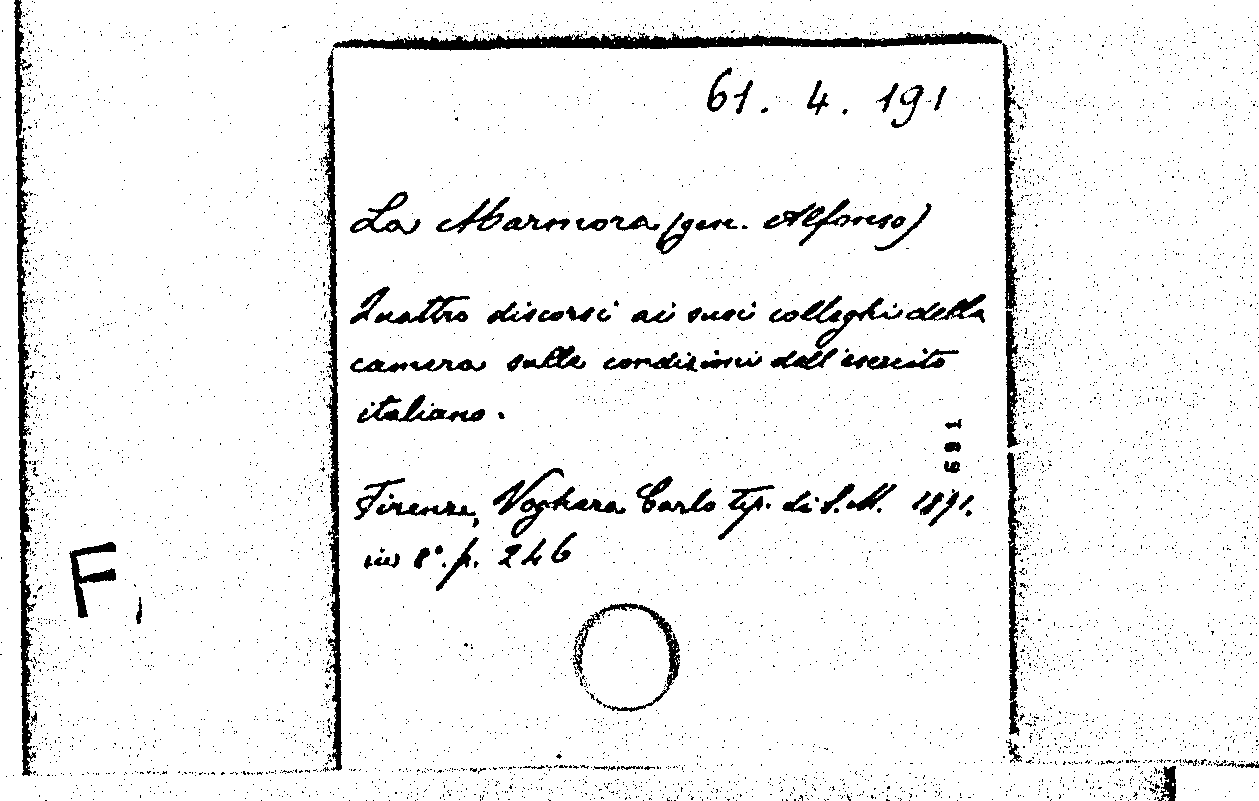 61. 4. 191
La Marmora (gen. Alfonso)
Quattro discorsi ai suoi colleghi della
camera sulle condizioni dell'esercito
italiano.
691
Firenze, Voghera Carlo tip. di S.M. 1871.
in 8°. p. 246
F,